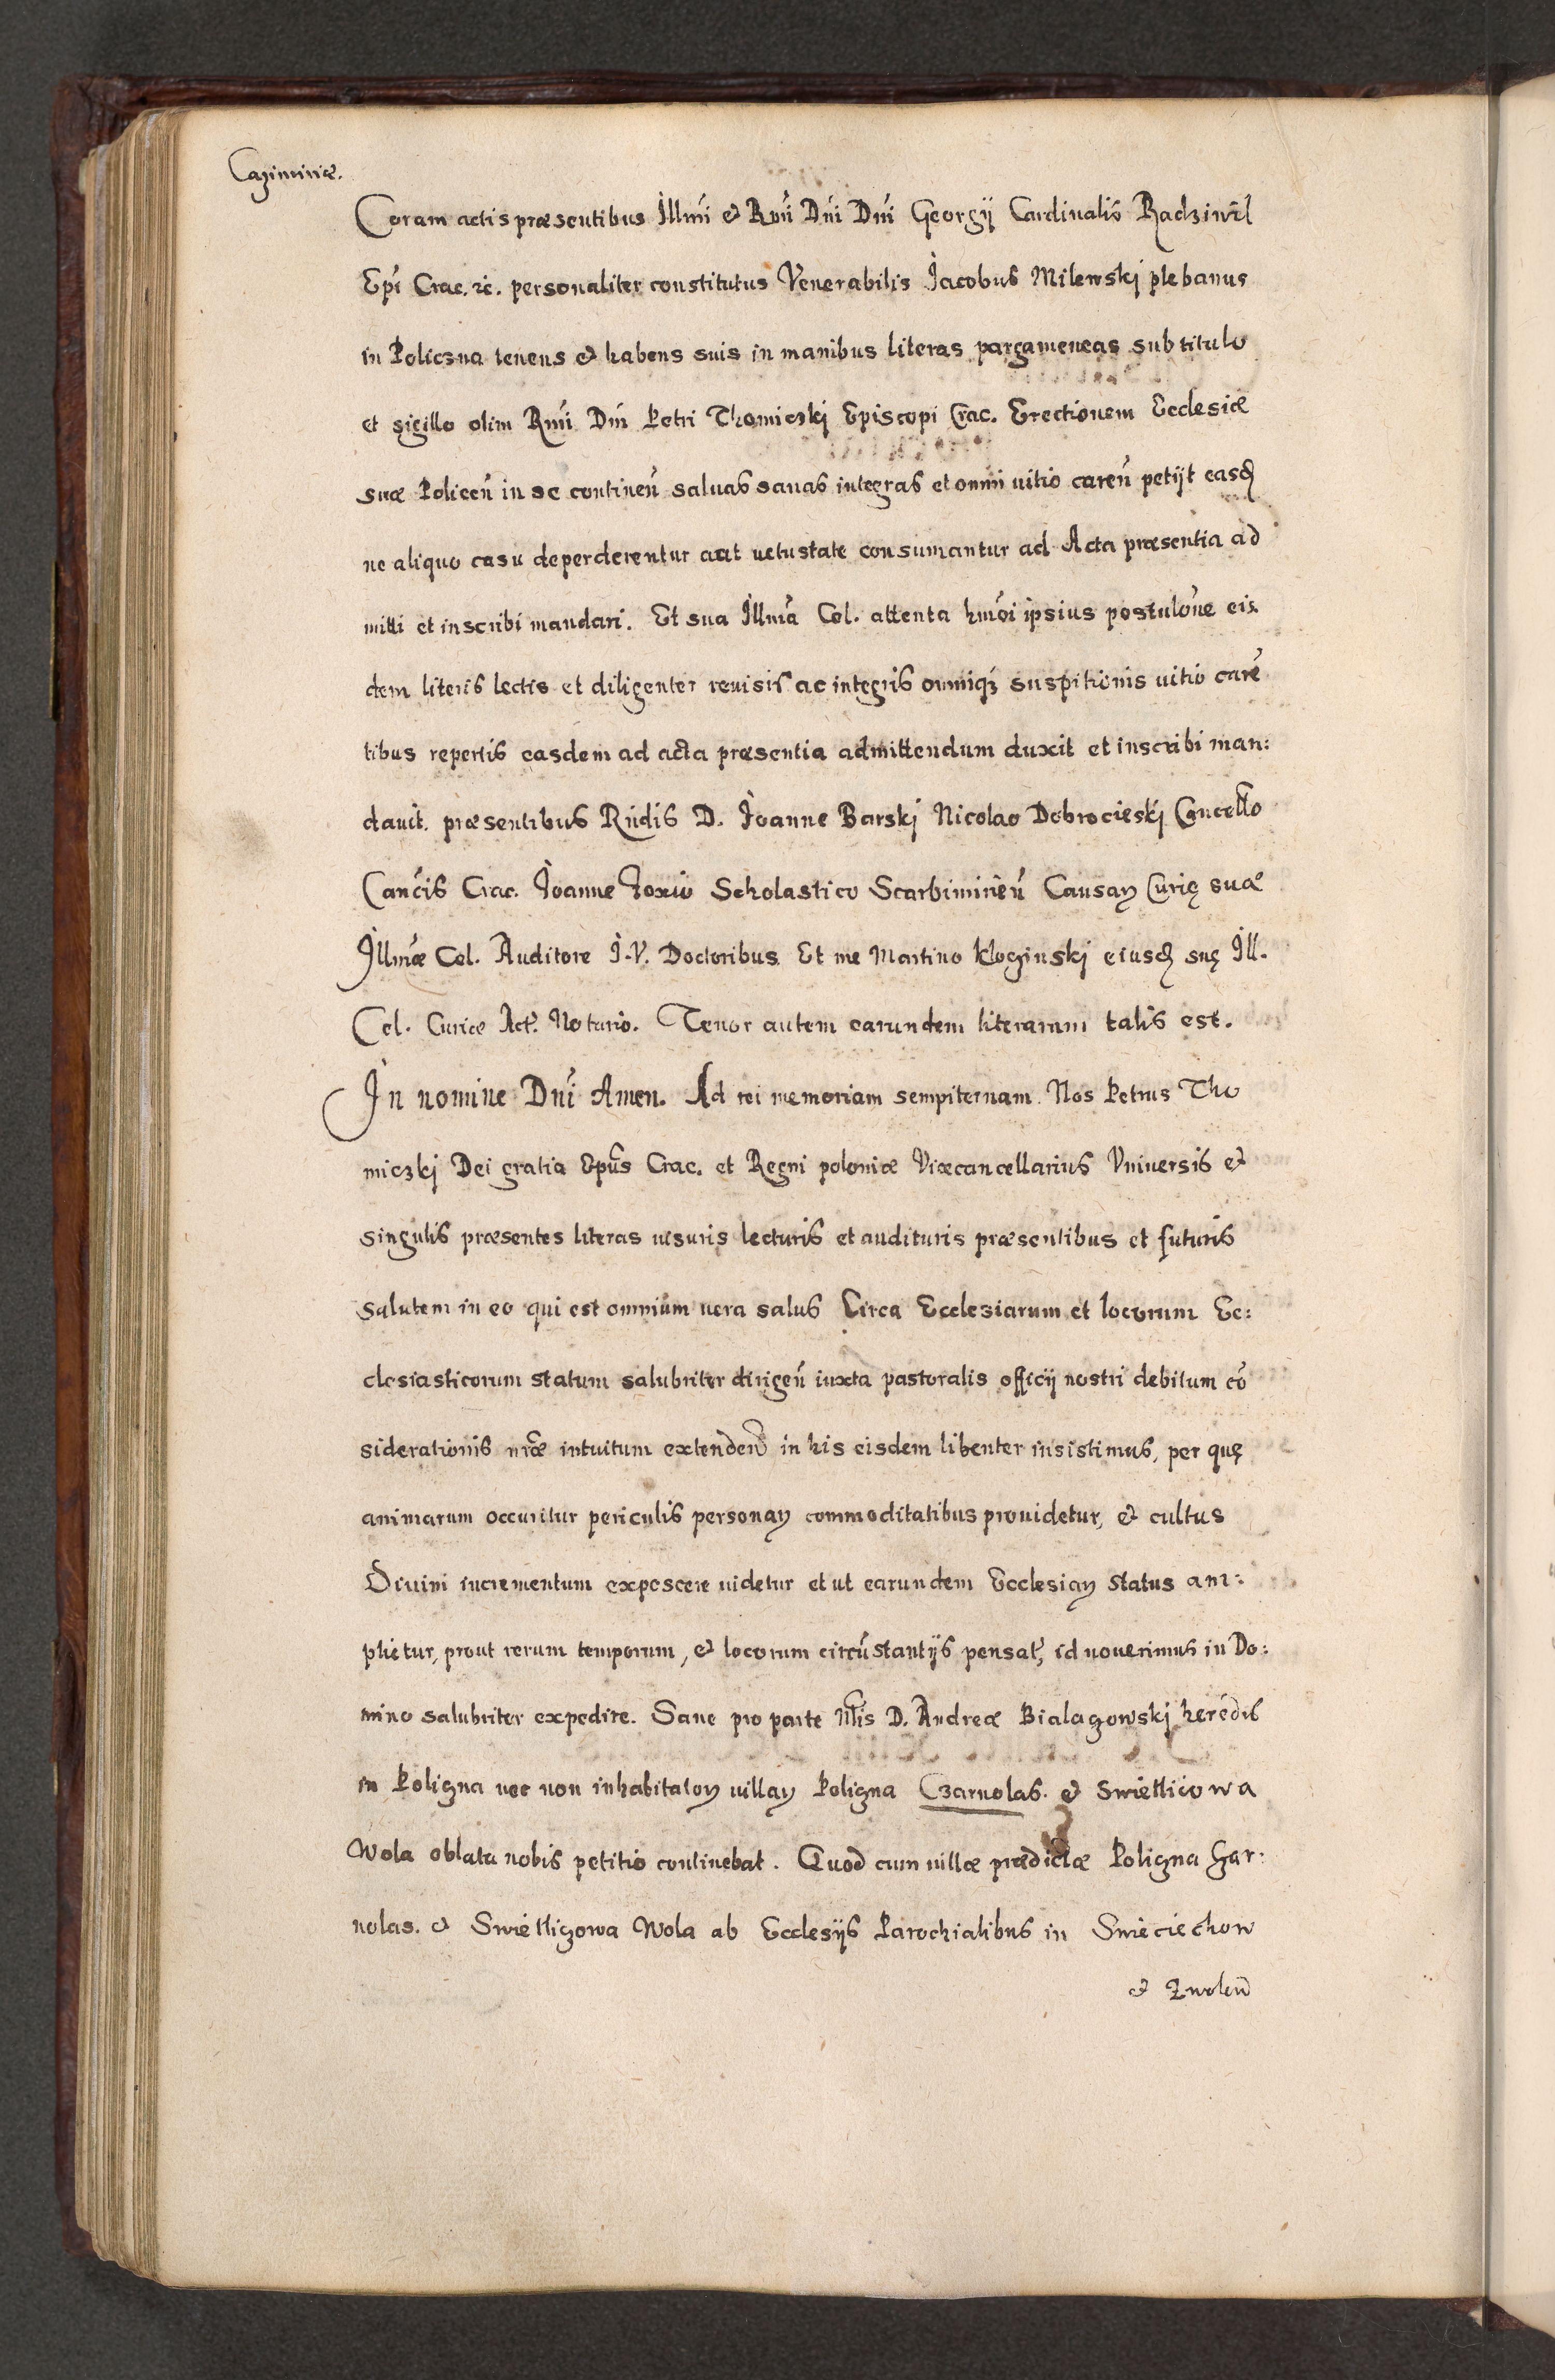 Cazimiriæ.
Coram actis præsentibus Illmi et Rmi Dni Dni Georgij Cardinalis Radziwil
Epi Crac. rc. personaliter constitutus Venerabilis Jacobus Milewskj plebanus
in Policzna tenens et habens suis in manibus literas pargameneas sub titulo
et sigillo olim Rmi Dni Petri Thomiczkj Episcopi Crac. Erectionem Ecclesiæ
suæ Policeñ in se contineñ saluas sanas integras et omni uitio careñ petijt easd
ne aliquo casu deperderentur aut uetustate consumantur ad Acta præsentia ad
mitti et inscribi mandari. Et sua Illma Cel. attenta hmoi ipsius postulone eis
dem literis lectis et diligenter reuisis ac integris omniq suspitionis uitio carē
tibus repertis easdem ad acta præsentia admittendum duxit et inscribi man:
dauit. præsentibus Rndis D. Joanne Barskj Nicolao Dobrocieskj Cancello
Cancis Crac. Joanne Foxio Scholastico Scarbimirieñ Causaꝝ Curię suæ
Illmæ Cel. Auditore J. V. Doctoribus. Et me Martino Kloginskj eiusd suę Ill.
Cel. Curiæ Act. Notario. Tenor autem earundem literarum talis est.
In nomine Dni Amen. Ad rei memoriam sempiternam. Nos Petrus Tho
miczkj Dei gratia Epus Crac. et Regni poloniæ Vicecancellarius Vniuersis et
singulis præsentes literas uisuris lecturis et audituris præsentibus et futuris
salutem in eo qui est omnium uera salus Circa Ecclesiarum et locorum Ec:
clesiasticorum statum salubriter dirigeñ iuxta pastoralis officij nostri debitum cō
siderationis nræ intuitum extendeñ in his eisdem libenter insistimus, per quę
animarum occuritur periculis personaꝝ commoditatibus prouidetur, et cultus
Diuini incrementum exposcere uidetur et ut earundem Ecclesiaꝝ status am:
plietur, prout rerum temporum, et locorum circūstantijs pensat, id nouerimus in Do:
mino salubriter expedire. Sane pro parte Nlis D. Andreæ Bialagowskj heredis
in Poligna nec non inhabitatoꝝ uillaꝝ Poligna Czarnolas. et Swietlicowa
Wola oblata nobis petitio continebat. Quod cum uillæ prædictæ Poligna Czar:
nolas. et Swietligowa Wola ab Ecclesijs Parochialibus in Swieciechow
et Zwoleñ